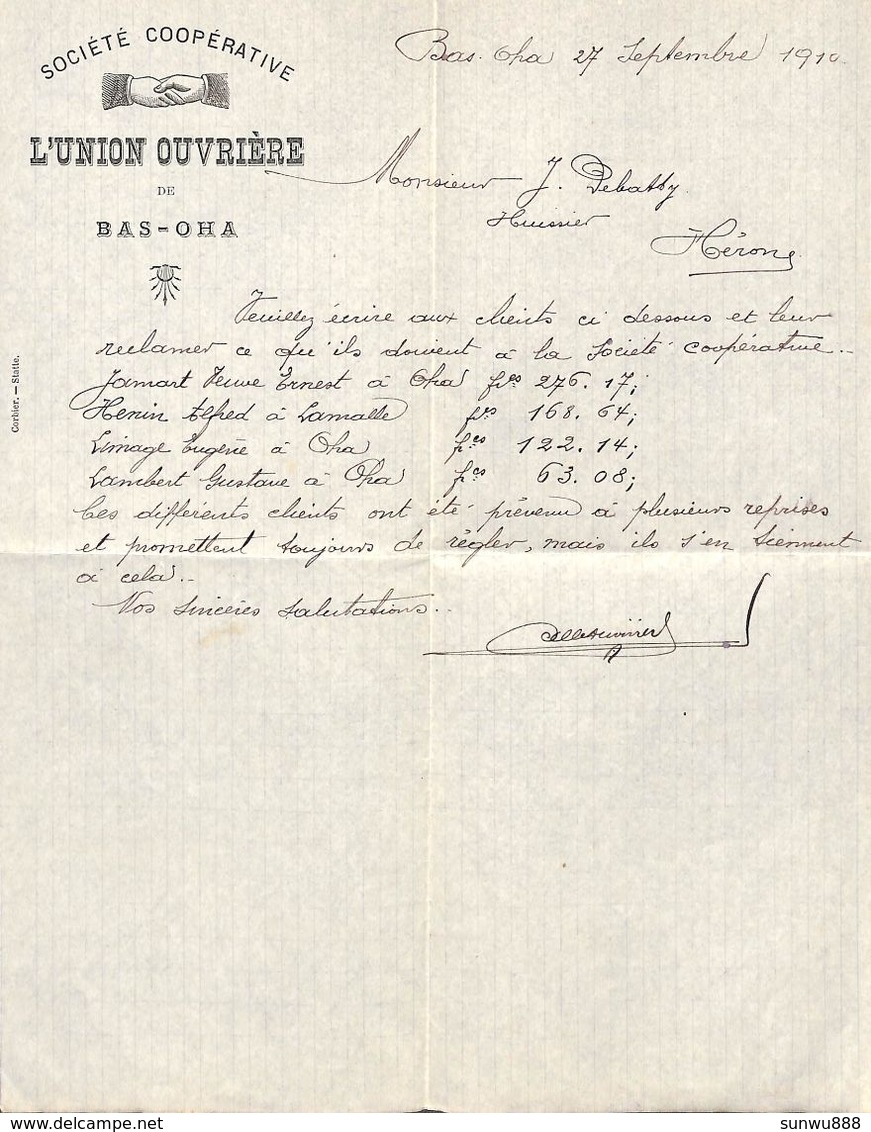 SOCIÉTÉ COOPÉRATIVE
L'UNION OUVRIÈRE
DE
BAS-OHA
Bas-Oha 27 Septembre 1910
Monsieur J. Debatty
Huissier
Héron
Veuillez écrire aux clients ci dessous et leur
reclamer ce qu'ils doivent à la Société coopérative.
Jamart Veuve Ernest à Oha frcs 276.17;
Henin Alfred à Lamalle frcs 168.64;
Limage Eugène à Oha frcs 122.14;
Lambert Gustave à Oha frcs 63.08;
Ces différents clients ont été prévenu à plusieurs reprises
et promettent toujours de régler, mais ils s'en tiennent
à cela.
Nos sincères salutations.
Corbier. — Statte.
delcampe.net
sunwu888